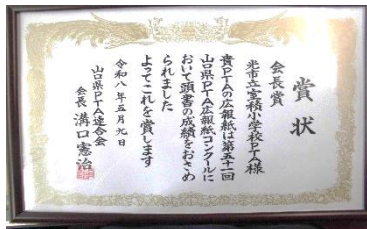 賞状
会長賞
光市立室積小学校PTA様
貴PTAの広報紙は第五十一回
山口県PTA広報紙コンクールに
おいて頭書の成績をおさめ
られました
よってこれを賞します
令和八年五月九日
山口県PTA連合会
会長 溝口憲治